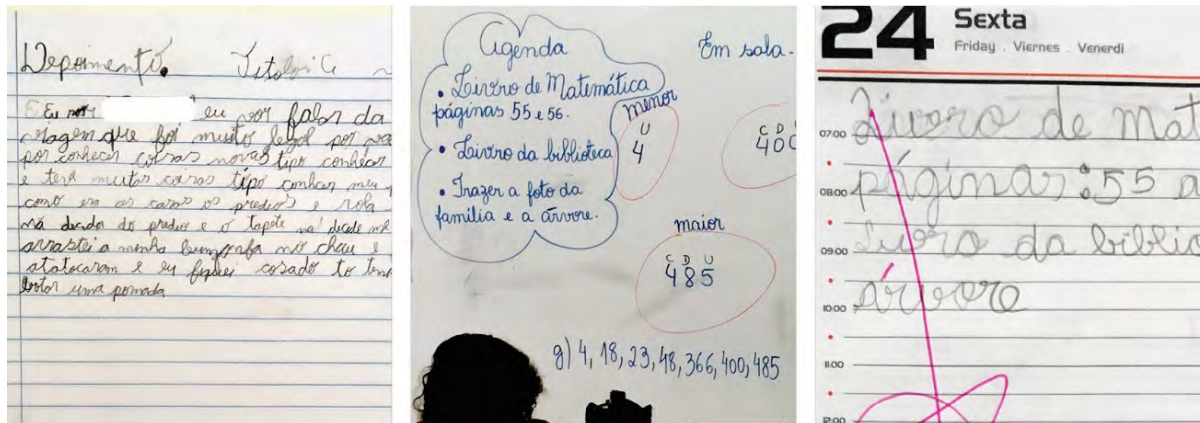 Depoimento.
Eu eu vor falar da
viagem que foi muito legal por
por conhecer coisas novas tipo conhecer
e teve muitas coisas tipo conhecer meu
como era as casas os predios e
do predio e o tapete
arrastei a minha no chau e
e eu fiquei cosado to
botar uma pomada
Agenda
• Livro de Matemática
páginas 55 e 56.
• Livro da biblioteca
• Trazer a foto da
família e a árvore.
Em sala.
menor
U
4
C D
400
maior
C D U
485
g) 4, 18, 23, 48, 366, 400, 485
24 Sexta
Friday . Viernes . Venerdi
Livro de Mat
07:00
páginas: 55 e
08:00
Livro da biblio
09:00
árvore
10:00
11:00
12:00